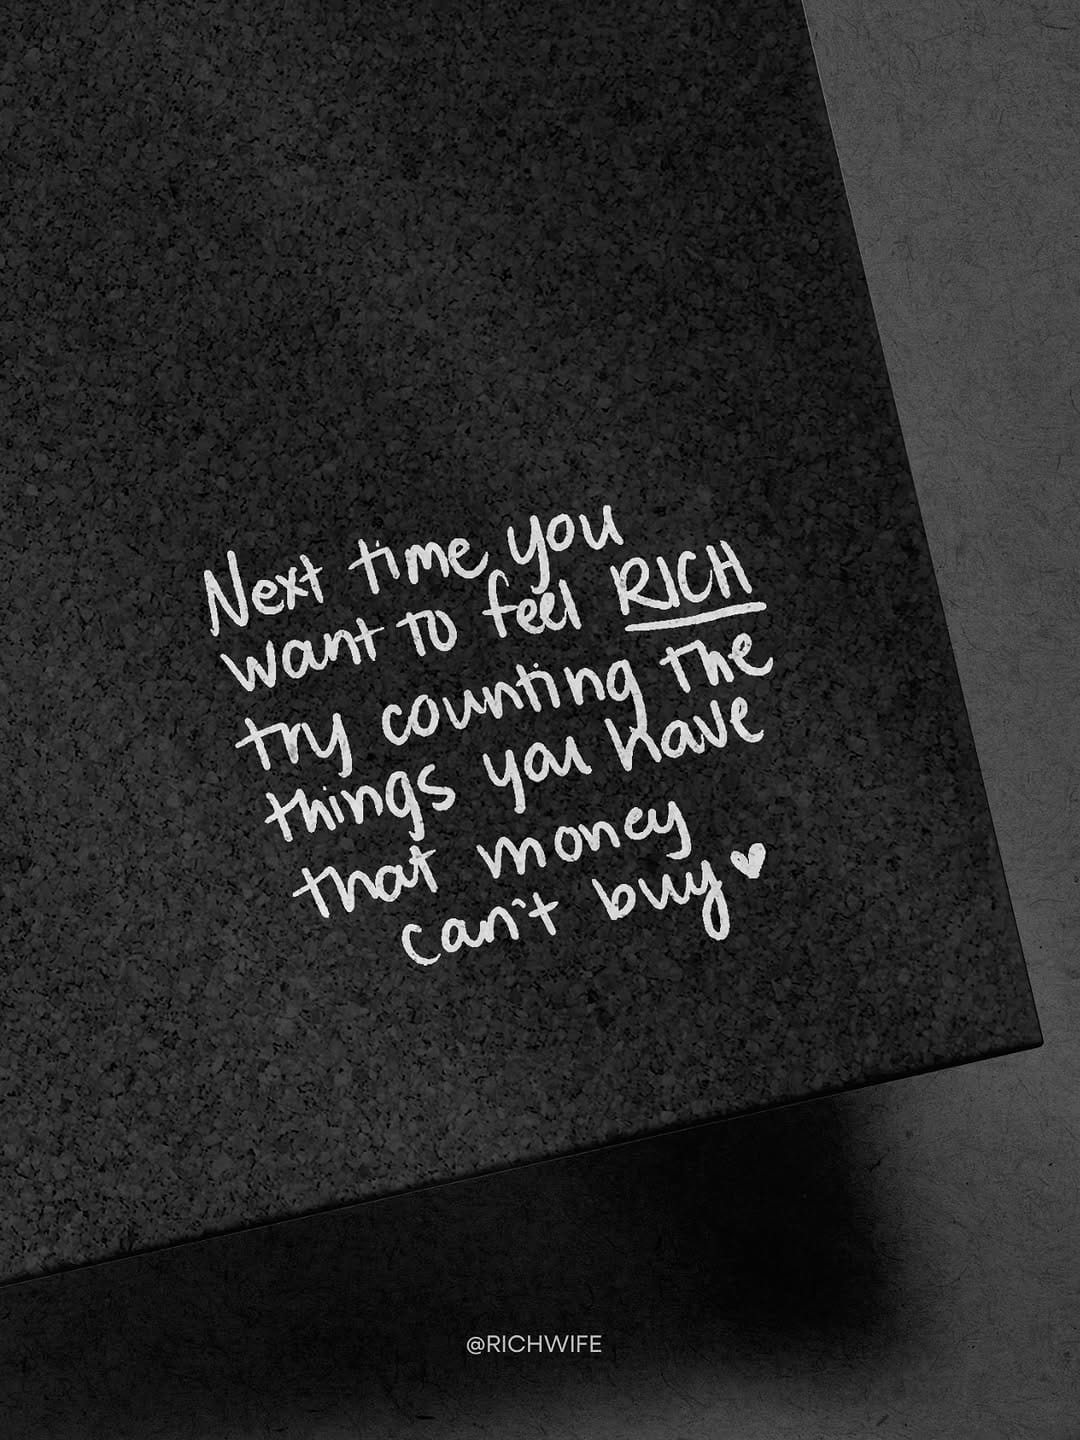 Next time you
want to feel RICH
try counting the
things you have
that money
can't buy ♥
@RICHWIFE